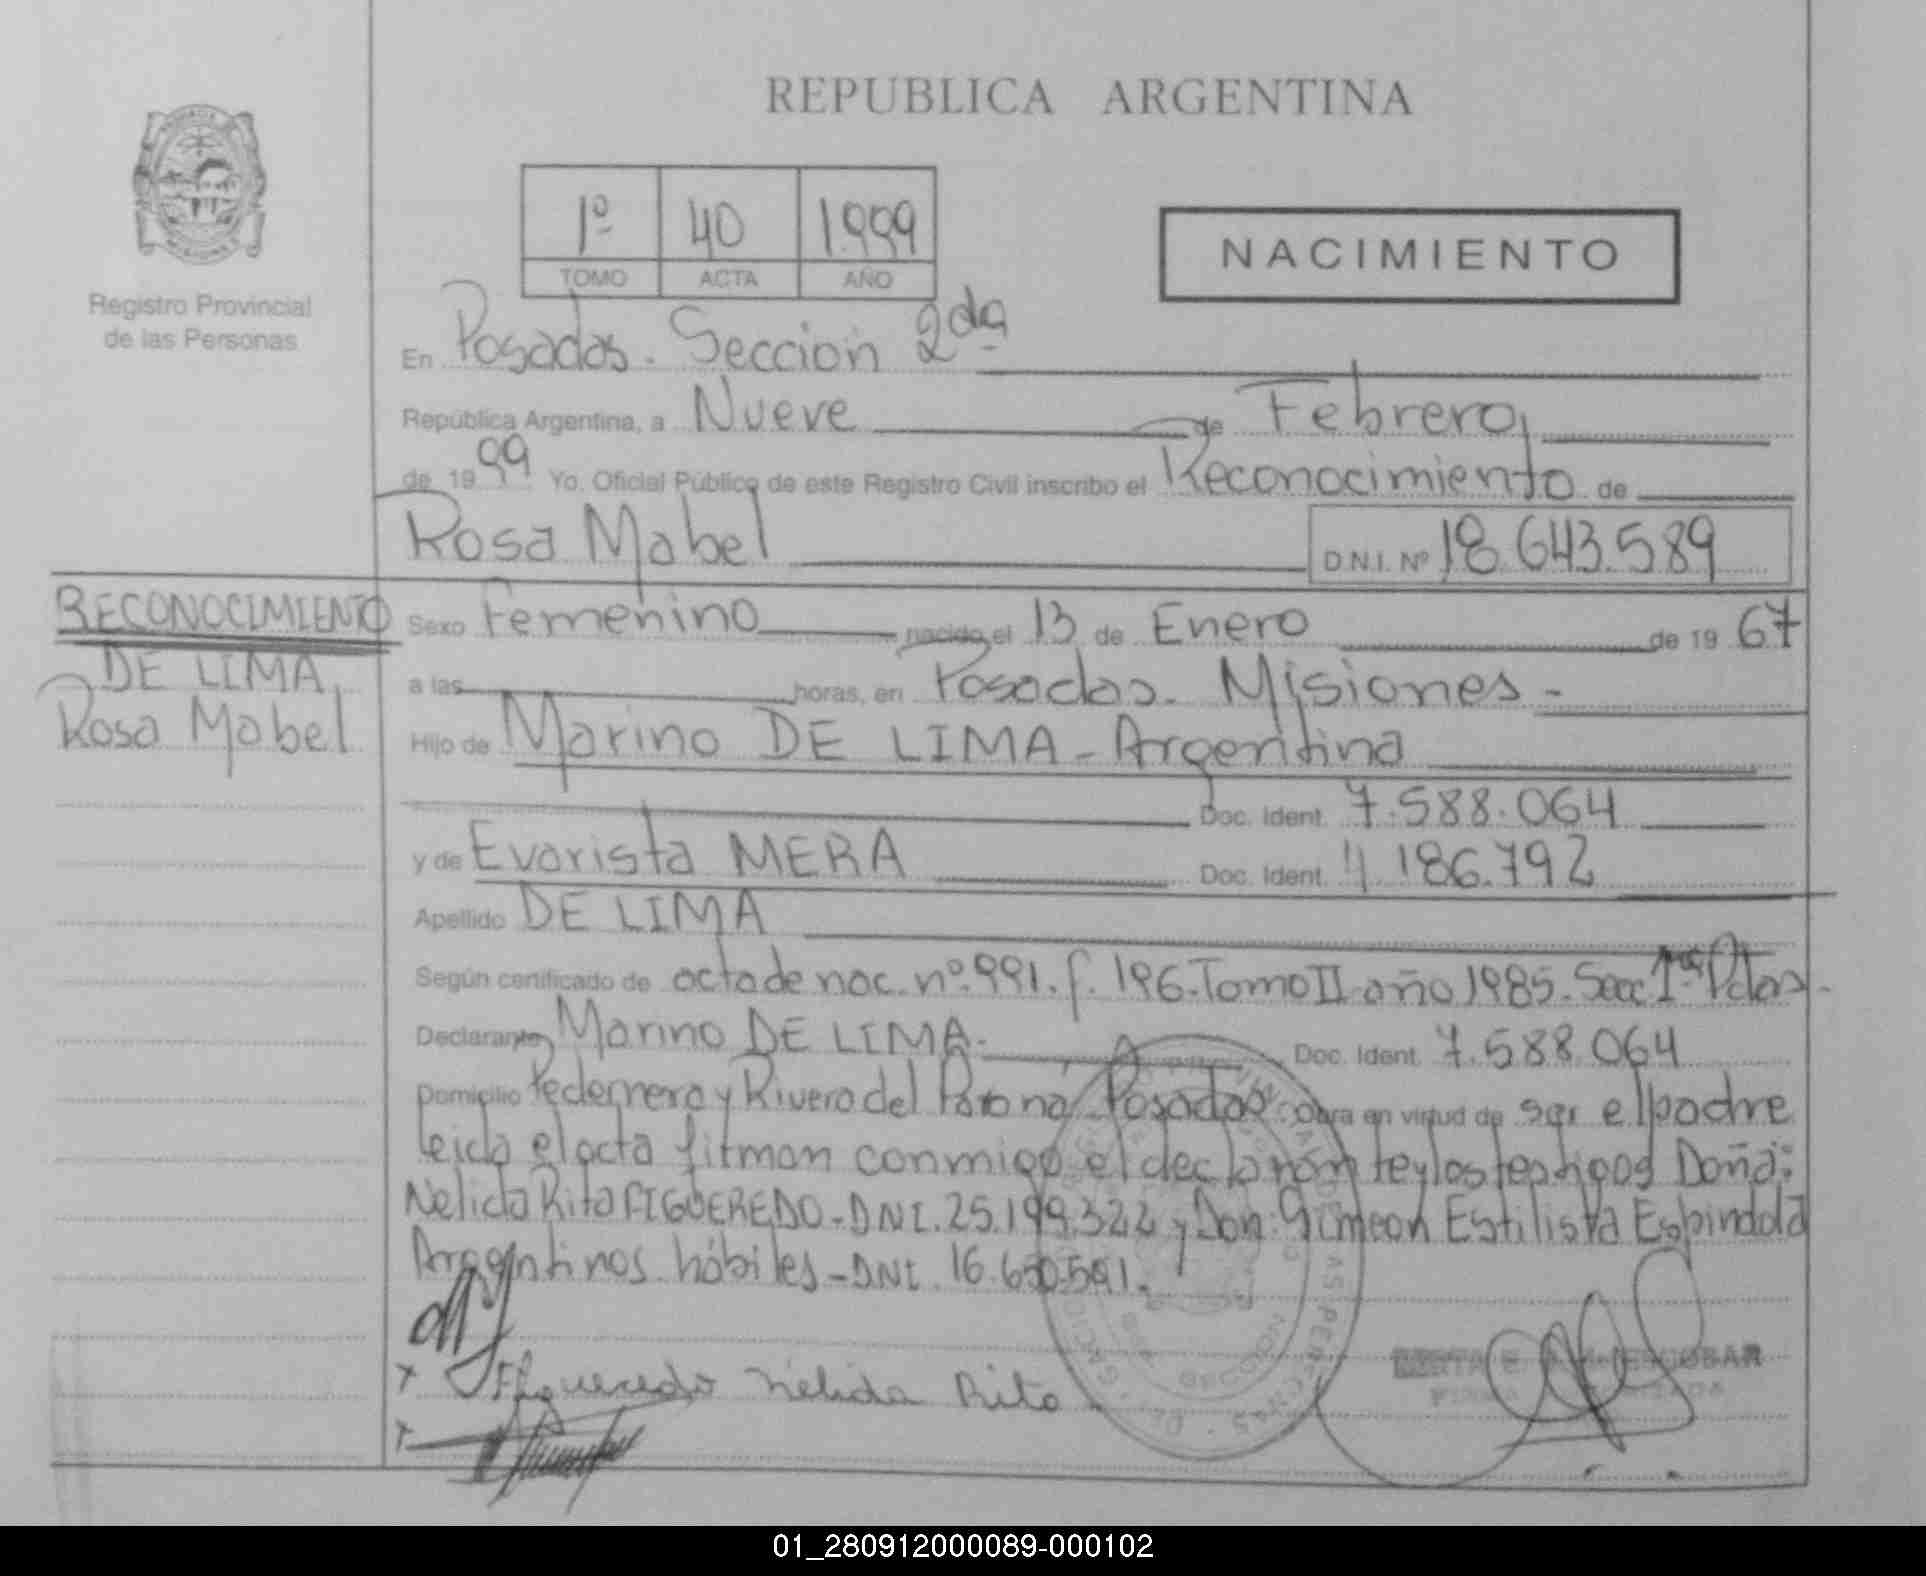 REPUBLICA ARGENTINA
1º 40 1.999
TOMO ACTA AÑO
NACIMIENTO
Registro Provincial
de las Personas
En Posadas. Seccion 2da
República Argentina, a Nueve de Febrero,
de 1999 Yo. Oficial Público de este Registro Civil inscribo el Reconocimiento de
Rosa Mabel D.N.I. Nº 18.643.589
RECONOCIMIENTO
DE LIMA
Rosa Mabel
Sexo Femenino nacido el 13 de Enero de 19 67
a las horas, en Posadas. Misiones.-
Hijo de Marino DE LIMA - Argentina
Doc. Ident. 7.588.064
y de Evarista MERA Doc. Ident. 4.186.792
Apellido DE LIMA
Según certificado de acta de nac. nº 991. f. 196. Tomo II año 1985. Secc 1ra Pdas.
Declarante Marino DE LIMA.- Doc. Ident. 7.588.064
Domicilio Pedernera y Rivera del Paraná Posadas obra en virtud de ser el padre
leida el acta firman conmigo el declarante y los testigos Doña:
Nelida Rita FIGUEREDO - DNI. 25.199.322 y Don: Simeon Estilista Espindola
Argentinos hábiles - DNI. 16.650.591.
Figueredo Nelida Rita
ESCOBAR
01_280912000089-000102